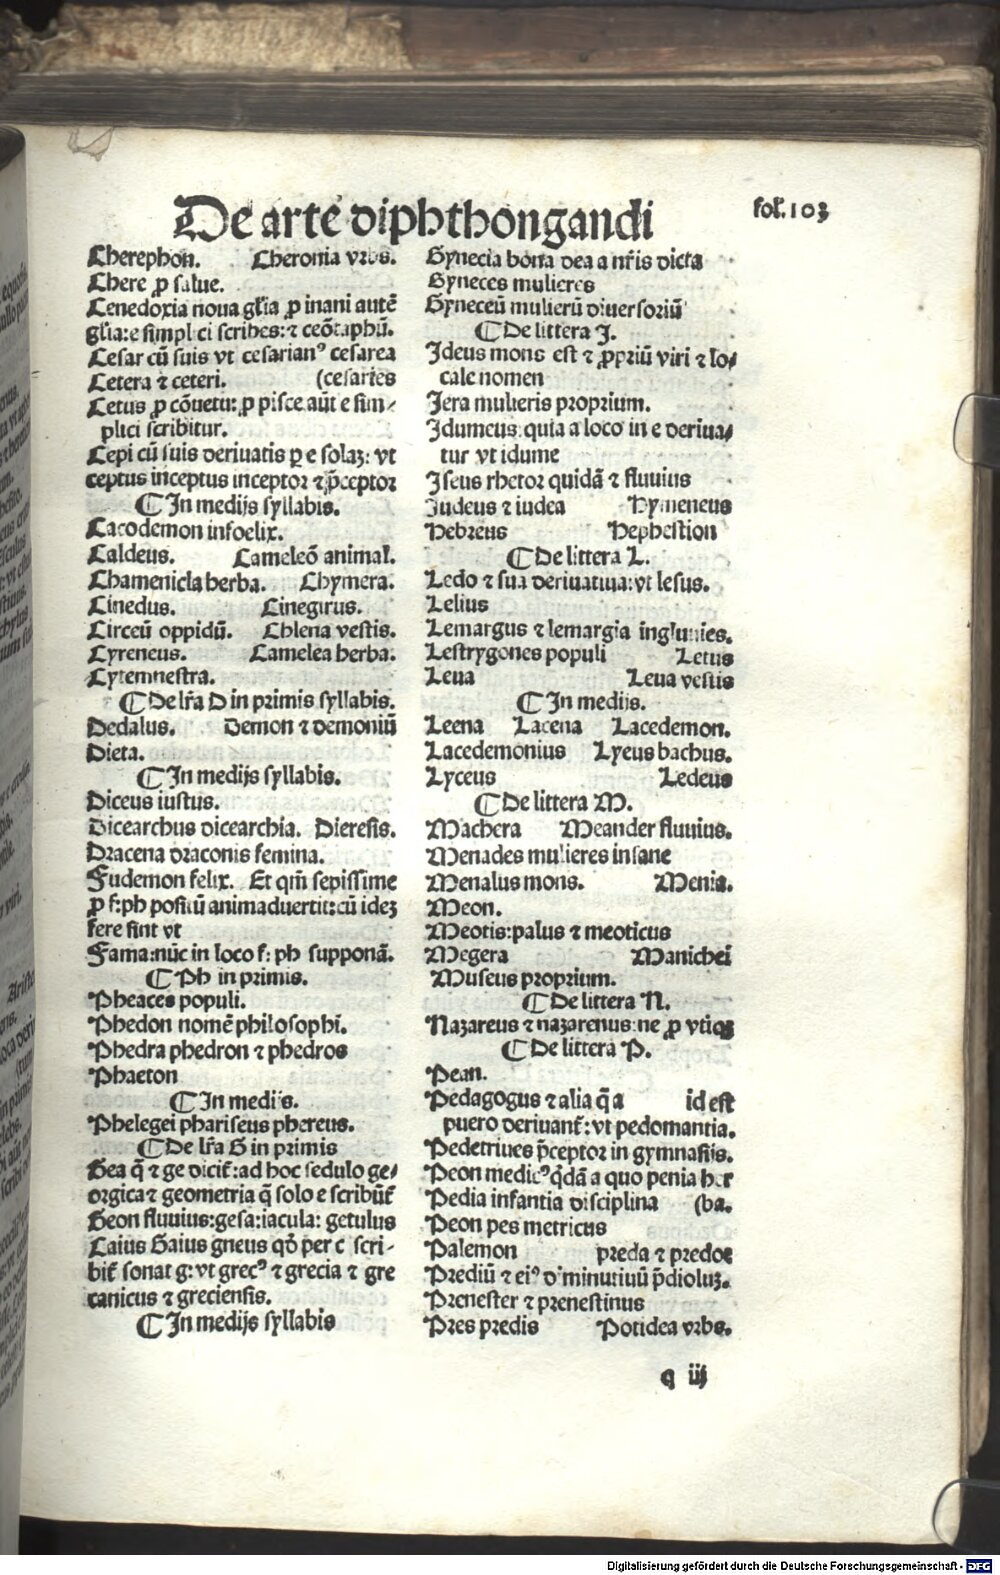 De arte diphthongandi
fol. 103
Cherephon. Cheronia vrbs.
Chere ꝓ salue.
Cenedoxia noua gl̄ia ꝓ inani autē
gl̄ia: e simplici scribes: ⁊ ceōtaphū.
Cesar cū suis vt cesarianꝰ cesarea
Cetera ⁊ ceteri. (cesaries
Cetus ꝓ cōuetu: ꝓ pisce aūt e sim-
plici scribitur.
Cepi cū suis deriuatis ꝑ e solaꝫ: vt
ceptus inceptus inceptor ⁊ p̄ceptor
¶ In medijs syllabis.
Cacodemon infoelix.
Caldeus. Cameleō animal.
Chamenicla herba. Chymera.
Cinedus. Cinegirus.
Circeū oppidū. Chlena vestis.
Cyreneus. Camelea herba.
Cytemnestra.
¶ De lr̄a D in primis syllabis.
Dedalus. Demon ⁊ demoniū
Dieta.
¶ In medijs syllabis.
Diceus iustus.
Dicearchus dicearchia. Dieresis.
Dracena draconis femina.
Fudemon felix. Et qm̄ sepissime
ꝓ f: ph positū animaduertit: cū ideꝫ
fere sint vt
Fama: nūc in loco f: ph supponā.
¶ Ph in primis.
Pheaces populi.
Phedon nomē philosophi.
Phedra phedron ⁊ phedros
Phaeton
¶ In medijs.
Phelegei phariseus phereus.
¶ De lr̄a G in primis
Gea q̄ ⁊ ge dicit̄: ad hoc sedulo ge-
orgica ⁊ geometria q̄ solo e scribūt̄
Geon fluuius: gesa: iacula: getulus
Caius Gaius gneus qd̄ per c scri-
bit̄ sonat g: vt grecꝰ ⁊ grecia ⁊ gre
canicus ⁊ greciensis.
¶ In medijs syllabis
Gynecia bona dea a nr̄is dicta
Gyneces mulieres
Gyneceū mulierū diuersoriū
¶ De littera J.
Jdeus mons est ⁊ ꝓpriū viri ⁊ lo-
cale nomen
Jera mulieris proprium.
Jdumeus: quia a loco in e deriua-
tur vt idume
Jseus rhetor quidā ⁊ fluuius
Judeus ⁊ iudea Hymeneus
Hebreus Hephestion
¶ De littera L.
Ledo ⁊ sua deriuatiua: vt lesus.
Lelius
Lemargus ⁊ lemargia ingluuies.
Lestrygones populi Letus
Leua Leua vestis
¶ In medijs.
Leena Lacena Lacedemon.
Lacedemonius Lyeus bachus.
Lyceus Ledeus
¶ De littera M.
Machera Meander fluuius.
Menades mulieres insane
Menalus mons. Menia.
Meon.
Meotis: palus ⁊ meoticus
Megera Manichei
Museus proprium.
¶ De littera N.
Nazareus ⁊ nazarenus: ne ꝓ vtiqꝫ
¶ De littera P.
Pean.
Pedagogus ⁊ alia q̄ a id est
puero deriuant̄: vt pedomantia.
Pedetriues p̄ceptor in gymnasijs.
Peon medicꝰ qdā a quo penia her
Pedia infantia disciplina (ba.
Peon pes metricus
Palemon preda ⁊ predoe
Prediū ⁊ eiꝰ diminutiuū p̄dioluꝫ.
Prenester ⁊ prenestinus
Pres predis Potidea vrbs.
q iij
Digitalisierung gefördert durch die Deutsche Forschungsgemeinschaft - DFG